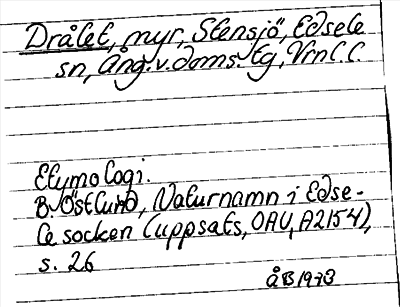 Drålet, myr, Stensjö, Edsele
sn, Ång. v. doms. tg, Vrnl. l.
Etymologi.
B. Östlund, Naturnamn i Edse-
le socken (uppsats, OAU, A2154),
s. 26
ÅB 1973